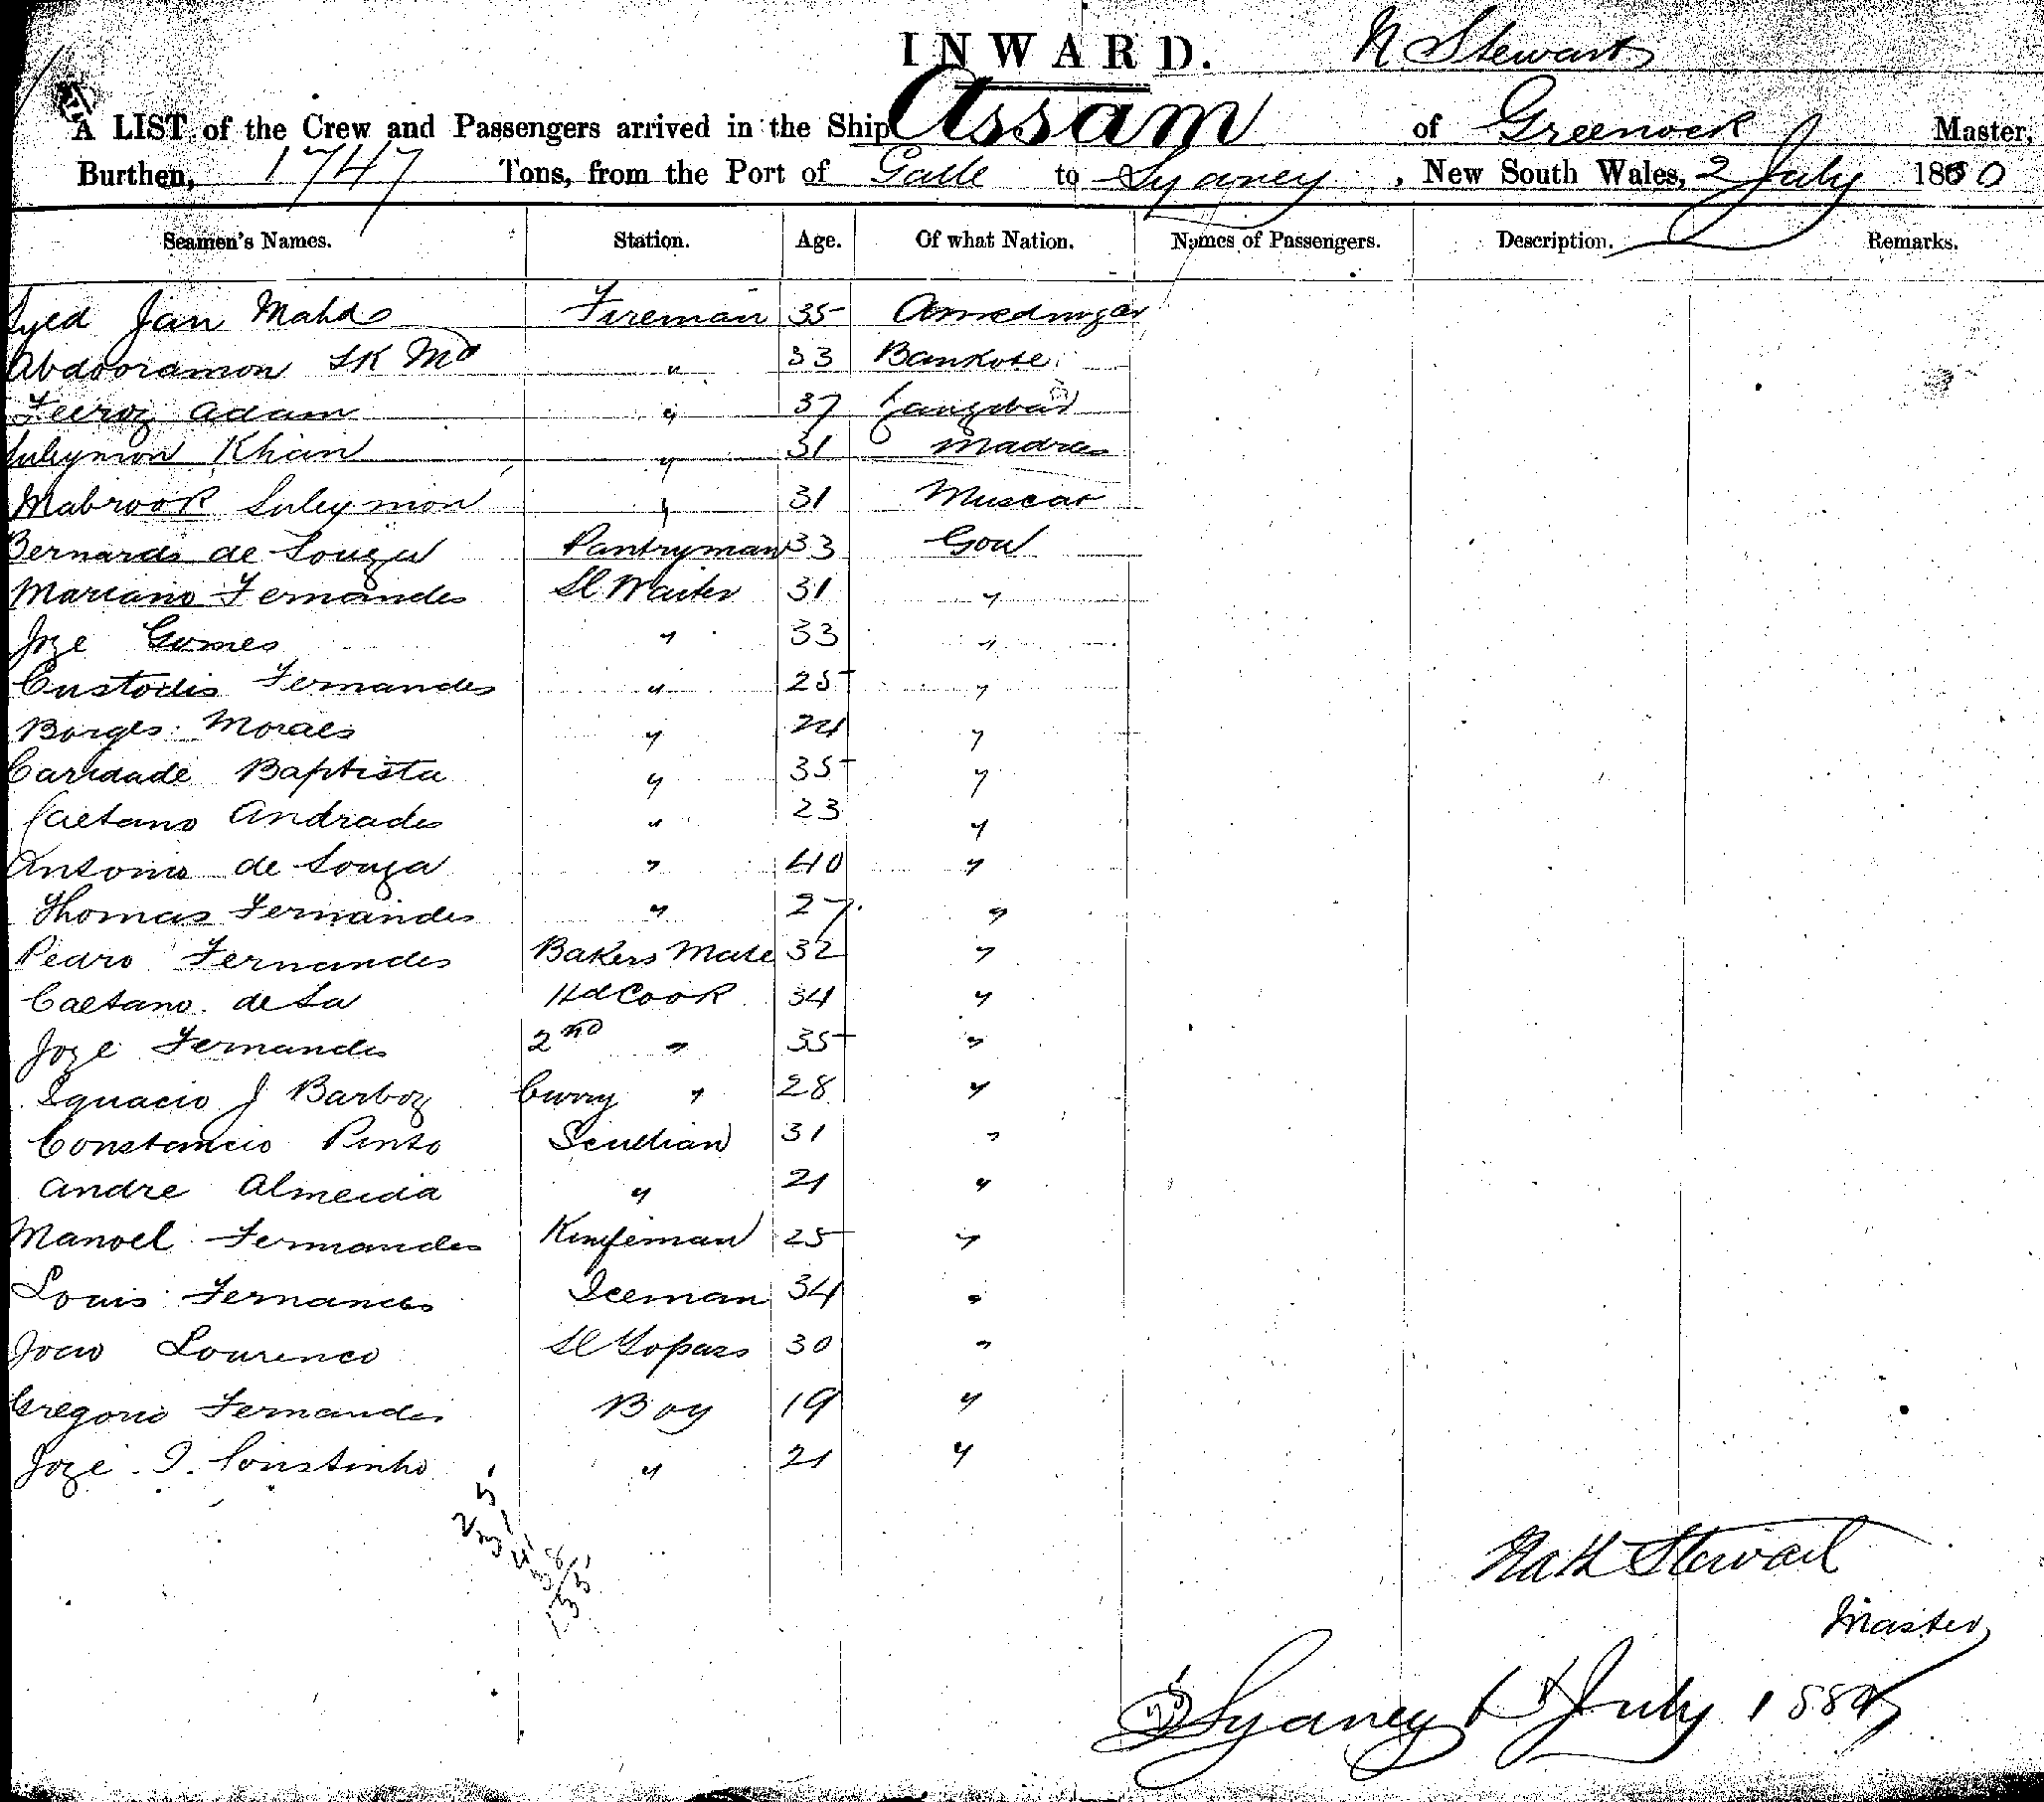 INWARD. N Stewart
A LIST of the Crew and Passengers arrived in the Ship Assam of Greenock Master,
Burthen, 1747 Tons, from the Port of Galle to Sydney, New South Wales, 2 July 1880
Seamen's Names. Station. Age. Of what Nation. Names of Passengers. Description. Remarks.
Syed Jan Mahd Fireman 35 Amednugar
Abdooramon SK Md " 33 Bankote
Feeroz Adam " 37 Zanzibar
Suleymon Khan " 31 Madras
Mabrook Suleymon " 31 Muscat
Bernardo de Souza Pantryman 33 Goa
Marcano Fernandes Sl Waiter 31 "
Joze Gomes " 33 "
Custodio Fernandes " 25 "
Borges Moraes " 24 "
Caridade Baptista " 35 "
Caetano Andrades " 23 "
Antonio de Souza " 40 "
Thomas Fernandes " 27 "
Pedro Fernandes Bakers Mate 32 "
Caetano de Sa Hd Cook 34 "
Joze Fernandes 2nd " 35 "
Ignacio J Barboz Curry " 28 "
Constancio Pinto Scullian 31 "
Andre Almeida " 21 "
Manoel Fernandes Knifeman 25 "
Louis Fernandes Iceman 34 "
Joao Lourenco Sl Topass 30 "
Gregorio Fernandes Boy 19 "
Joze I. Coustinho " 21 "
25
31
41
38
135
Nath Stewart
Master
Sydney July 1880